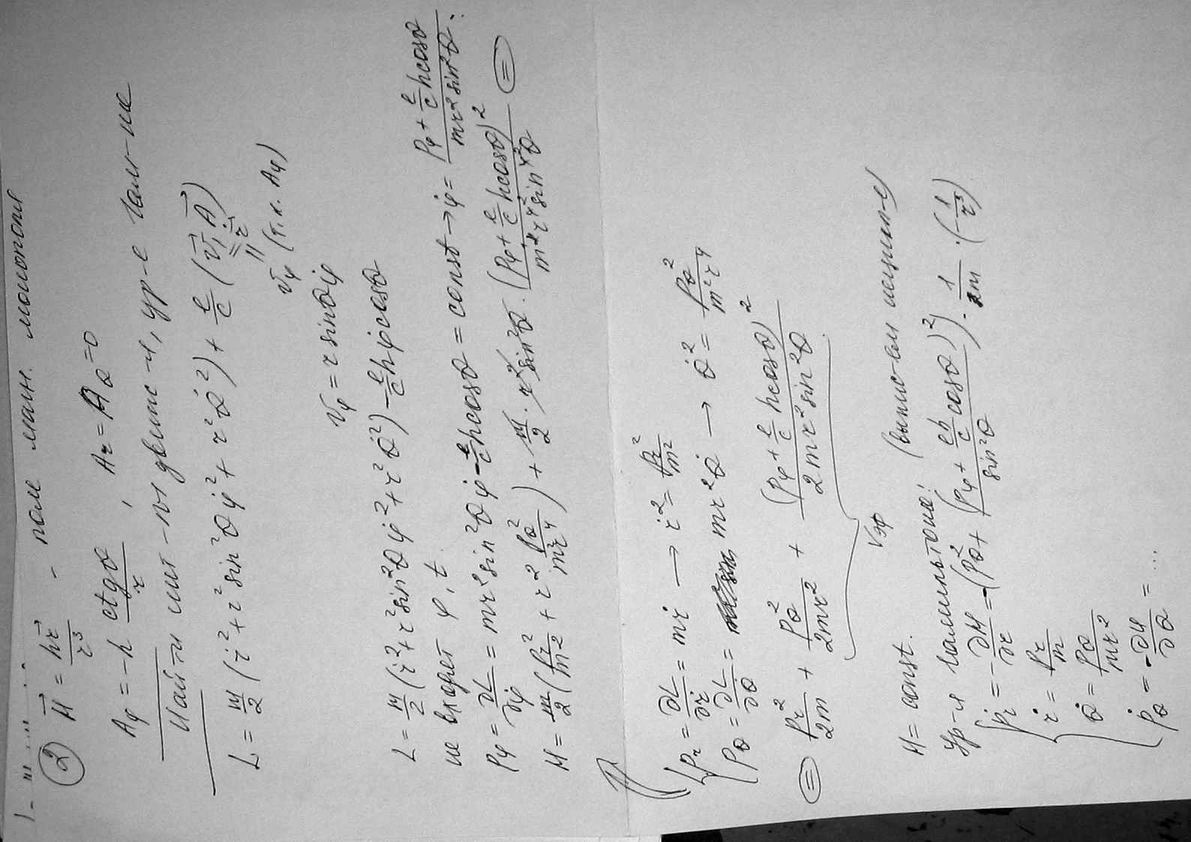 ② H⃗ = hr⃗/r³ - поле магн. монополя
A_φ = -h ctgθ/r, A_r = A_θ = 0
Найти инт-лы движ-я, ур-е Гам-на
L = m/2 (ṙ² + r² sin²θ φ̇² + r² θ̇²) + e/c (v⃗, A⃗)
v_φ (т.к. A_φ)
v_φ = r sinθ φ̇
L = m/2 (ṙ² + r² sin²θ φ̇² + r² θ̇²) - e/c h φ̇ cosθ
не входят φ, t
p_φ = ∂L/∂φ̇ = mr² sin²θ φ̇ - e/c h cosθ = const → φ̇ = (p_φ + e/c h cosθ)/(mr² sin²θ)
H = m/2 (p_r²/m² + r² p_θ²/(m²r⁴)) + m/2 · r² sin²θ · (p_φ + e/c h cosθ)²/(m² r⁴ sin⁴θ) ⊜
p_r = ∂L/∂ṙ = mṙ → ṙ² = p_r²/m²
p_θ = ∂L/∂θ̇ = mr² θ̇ → θ̇² = p_θ²/(m²r⁴)
⊜ p_r²/2m + p_θ²/(2mr²) + (p_φ + e/c h cosθ)²/(2mr² sin²θ)
V_эф
H = const.
Ур-я Гамильтона:
ṗ_r = -∂H/∂r = -(p_θ² + (p_φ + eh/c cosθ)²/sin²θ) · 1/m · (-1/r³)
ṙ = p_r/m
θ̇ = p_θ/(mr²)
ṗ_θ = -∂H/∂θ = ...